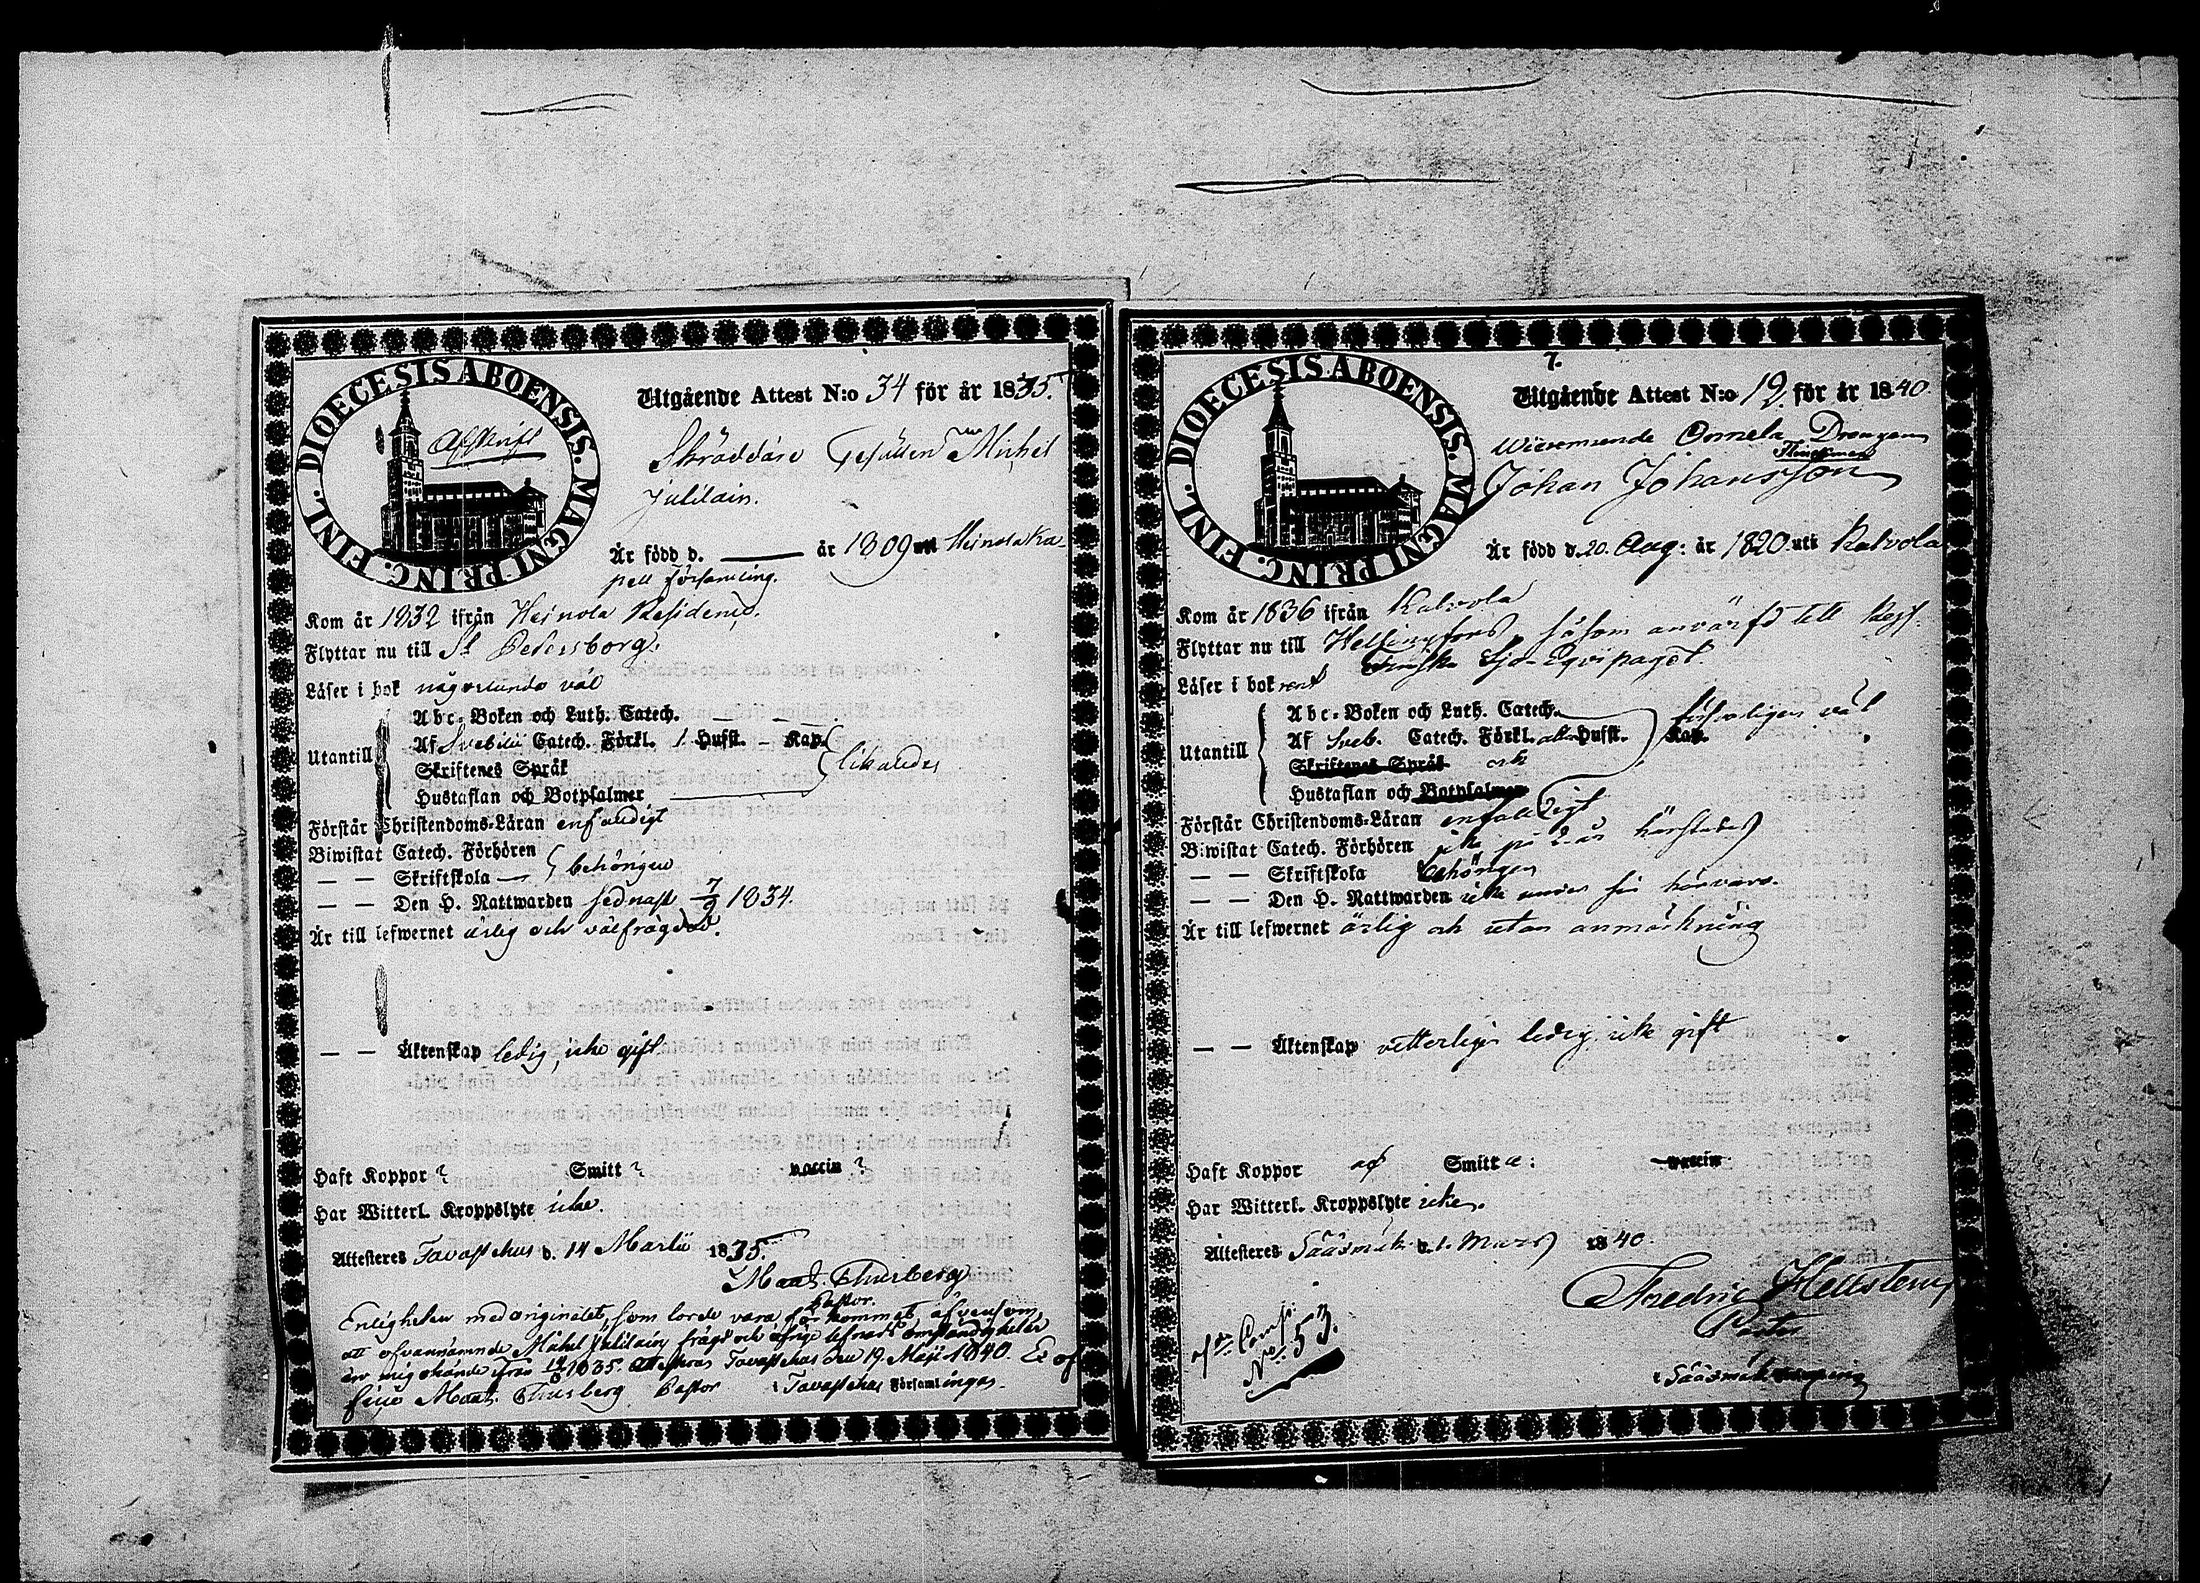 DIOECESIS ABOENSIS. MAGNI PRINC. FINL.
Afskrift
Utgående Attest N:o 34 för år 1835.
Skräddare Gesällen Michel
Julilain.
Är född d. — år 1809 uti Heinola Ka-
pell församling.
Kom år 1832 ifrån Heinola Residence.
Flyttar nu till St Petersborg.
Läser i bok någorlunda väl
Utantill
Abc-Boken och Luth. Catech. — —
Af Svebilii Catech. Förkl. 1 Husft. — Kap.
Skriftenes Språk
likaledes
Hustaflan och Botpsalmer
Förstår Christendoms-Läran enfaldigt
Biwistat Catech. Förhören
— — Skriftskola — behörigen
— — Den H. Nattwarden sednast 7/9 1834.
Är till lefwernet ärlig och välfrägdad.
— — Äktenskap ledig, icke gift.
Haft Koppor ? Smitt ? vaccin ?
Har Witterl. Kroppslyte icke.
Attesteras Tavastehus d. 14 Martii 1835.
Maat. Thusberg
Pastor.
Enligheten med originalet, som torde vara förkommet, äfvensom
att ofvannämnde Michel Julilains frägd och öfrige lefnads omständigheter
äro mig okände ifrån 1835. Attesteras Tavastehus den 19 Maji 1840. Ex of-
ficio Maat. Thusberg Pastor i Tavastehus Församlingar.
7.
DIOECESIS ABOENSIS. MAGNI PRINC. FINL.
Utgående Attest N:o 19. för år 1840.
Drengen
Johan Johansson
Är född d. 20. Aug: år 1820. uti Kalvola
Kom år 1836 ifrån Kalvola
Flyttar nu till Helsingfors, såsom anvärfd till Kejs.
Finska Sjö-Equipaget.
Läser i bok rent
Utantill
Abc-Boken och Luth. Catech. försvarligen väl
Af Sveb. Catech. Förkl. Husft. Kap.
Skriftenes Språk och
Hustaflan och Botpsalmer
Förstår Christendoms-Läran enfaldigt
Biwistat Catech. Förhören icke på 2 år härstädes
— — Skriftskola behörigen
— — Den H. Nattwarden icke under sin härvaro.
Är till lefwernet ärlig och utan anmärkning
— — Äktenskap vetterligen ledig, icke gift
Haft Koppor af Smitta: vaccin
Har Witterl. Kroppslyte icke.
Attesteras Sääsmäki d. 1. Mars 1840.
Fredric Hellsten
Pastor
i Sääsmäki
No 53.